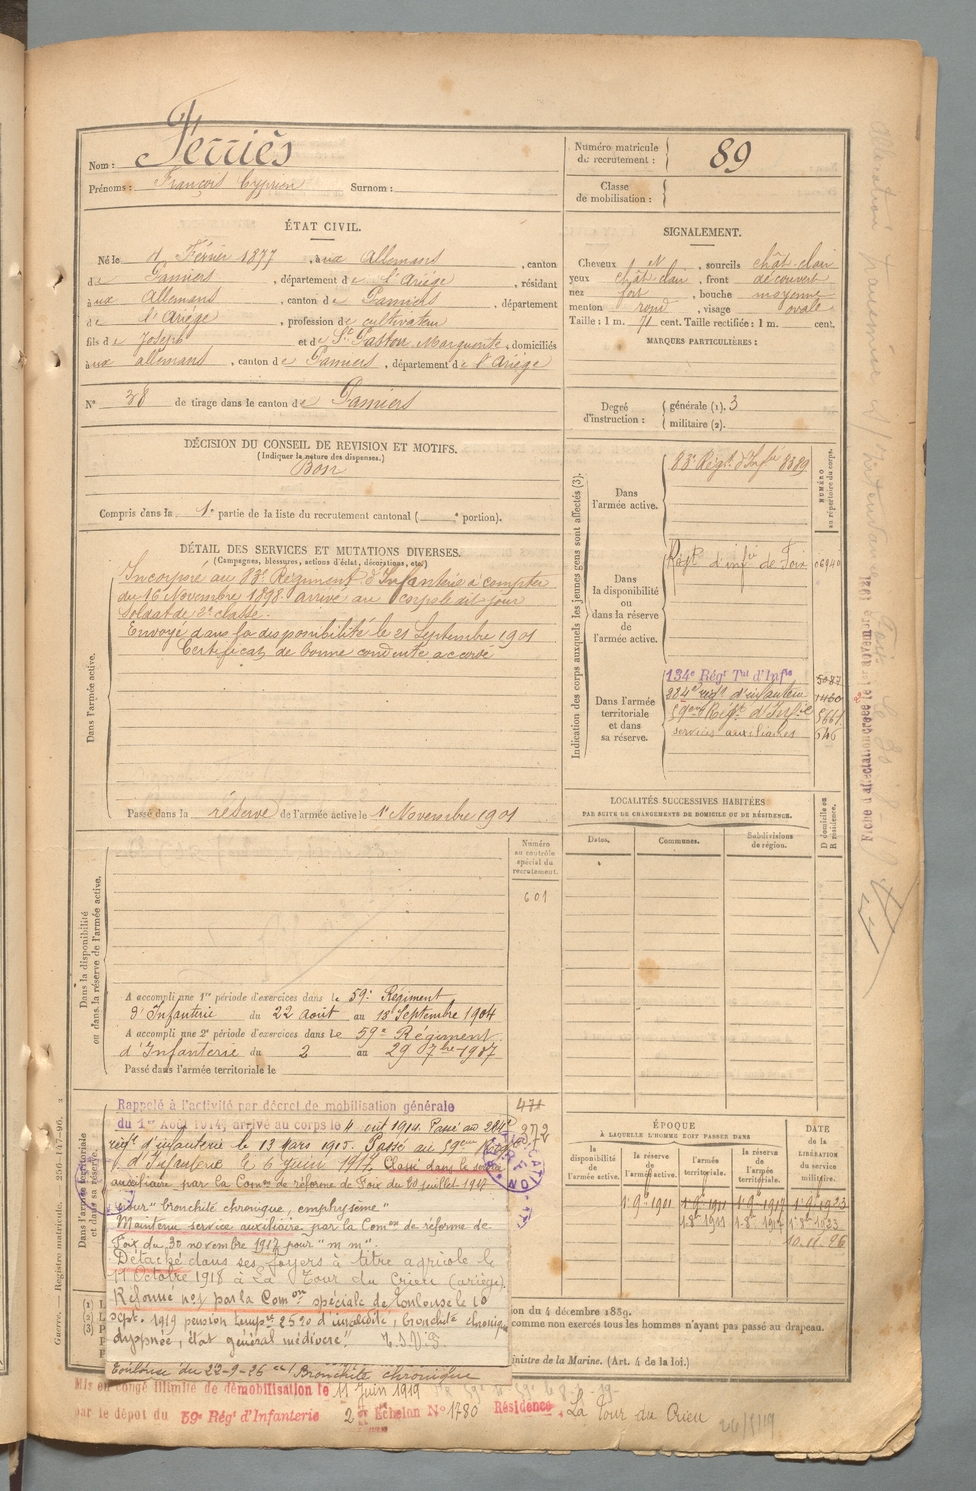 Nom : Ferriès
Prénoms : François Cyprien Surnom :
Numéro matricule du recrutement : 89
Classe de mobilisation :
ÉTAT CIVIL.
Né le 4 Février 1877, à aux Allemans, canton
de Pamiers, département de l'Ariège, résidant
à aux Allemans, canton de Pamiers, département
de l'Ariège, profession de cultivateur
fils de Joseph et de St Gaston Marguerite, domiciliés
à aux allemans, canton de Pamiers, département de l'Ariège
N° 38 de tirage dans le canton de Pamiers
SIGNALEMENT.
Cheveux et sourcils chât. clair
yeux chât. clair, front découvert
nez fort, bouche moyenne
menton rond, visage ovale
Taille : 1 m. 71 cent. Taille rectifiée : 1 m. cent.
MARQUES PARTICULIÈRES :
Degré d'instruction : générale (1). 3
militaire (2).
DÉCISION DU CONSEIL DE REVISION ET MOTIFS.
(Indiquer la nature des dispenses.)
Bon
Compris dans la 1e partie de la liste du recrutement cantonal ( e portion).
DÉTAIL DES SERVICES ET MUTATIONS DIVERSES.
(Campagnes, blessures, actions d'éclat, décorations, etc.)
Dans l'armée active.
Incorporé au 83e Régiment d'Infanterie à compter
du 16 Novembre 1898. arrivé au corps le dit jour
soldat de 2e classe.
Envoyé dans la disponibilité le 21 Septembre 1901
Certificat de bonne conduite accordé
Passé dans la réserve de l'armée active le 1er Novembre 1901
Indication des corps auxquels les jeunes gens sont affectés (3).
NUMÉRO au répertoire du corps.
Dans l'armée active.
83e Régt. d'Infie 8389
Dans la disponibilité ou dans la réserve de l'armée active.
Régt d'infie de Foix 06940
Dans l'armée territoriale et dans sa réserve.
134e Régt Tal d'Infie 5087
224e régt d'infanterie 7460
59eme Régt d'Infie 5661
services auxiliaires 546
LOCALITÉS SUCCESSIVES HABITÉES
PAR SUITE DE CHANGEMENTS DE DOMICILE OU DE RÉSIDENCE.
Dates.
Communes.
Subdivisions de région.
D domicile ou R résidence.
Dans la disponibilité ou dans la réserve de l'armée active.
Numéro au contrôle spécial du recrutement.
601
A accompli une 1re période d'exercices dans le 59e Régiment
d'Infanterie du 22 août au 18 Septembre 1904
A accompli une 2e période d'exercices dans le 59e Régiment
d'Infanterie du 2 au 29 7bre 1907
Passé dans l'armée territoriale le
Dans l'armée territoriale et dans sa réserve.
471
372
Rappelé à l'activité par décret de mobilisation générale
du 1er Août 1914, arrivé au corps le 4 août 1914. Passé au 224e
régt d'infanterie le 13 Mars 1915. Passé au 59eme Régt
d'Infanterie le 6 juin 1917. Classé dans le service
auxiliaire par la Comon de réforme de Foix du 20 juillet 1917
pour "bronchite chronique, emphysème"
Maintenu service auxiliaire par la Comon de réforme de
Foix du 30 novembre 1917 pour "m m".
Détaché dans ses foyers à titre agricole le
11 Octobre 1918 à La Tour du Crieu (ariège).
Réformé no 1 par la Comon spéciale de Toulouse le 10
sept. 1919 pension tempre 25 % d'invalidité, bronchite chronique
dyspnée, état général médiocre"
Toulouse du 22-9-26 Bronchite chronique
Mis en congé illimité de démobilisation le 11 Juin 1919
par le dépot du 59e Régt d'Infanterie 2e Echelon N° 1780 Résidence, La Tour du Crieu
ÉPOQUE
À LAQUELLE L'HOMME DOIT PASSER DANS
la disponibilité de l'armée active.
la réserve de l'armée active.
l'armée territoriale.
la réserve de l'armée territoriale.
DATE de la LIBÉRATION du service militaire.
1er 9bre 1901 1er 9bre 1911 1er 9bre 1917 1er 9bre 1923
1er 8bre 1911 1er 8bre 1917 1er 8bre 1923
10-11-26
ion du 4 décembre 1889.
comme non exercés tous les hommes n'ayant pas passé au drapeau.
inistre de la Marine. (Art. 4 de la loi.)
Guerre. — Registre matricule. — 256-147-96.